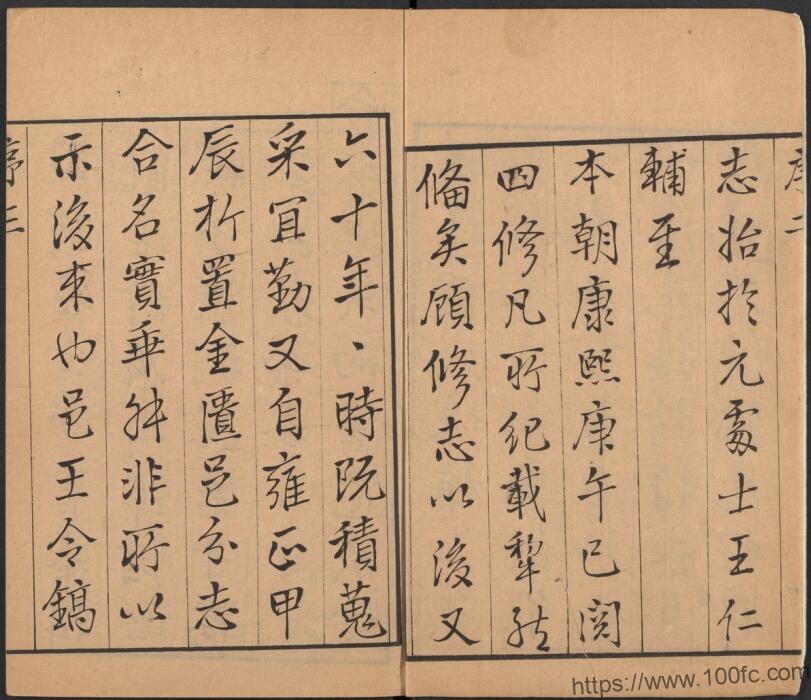 序二
志始於元處士王仁
輔至
本朝康熙庚午已閱
四修凡所紀載犂然
備矣顧修志以後又
六十年丶時既積蒐
采宜勤又自雍正甲
辰析置金匱邑分志
合名實乖舛非所以
示後來也邑王令鎬
序三
https://www.100fc.com